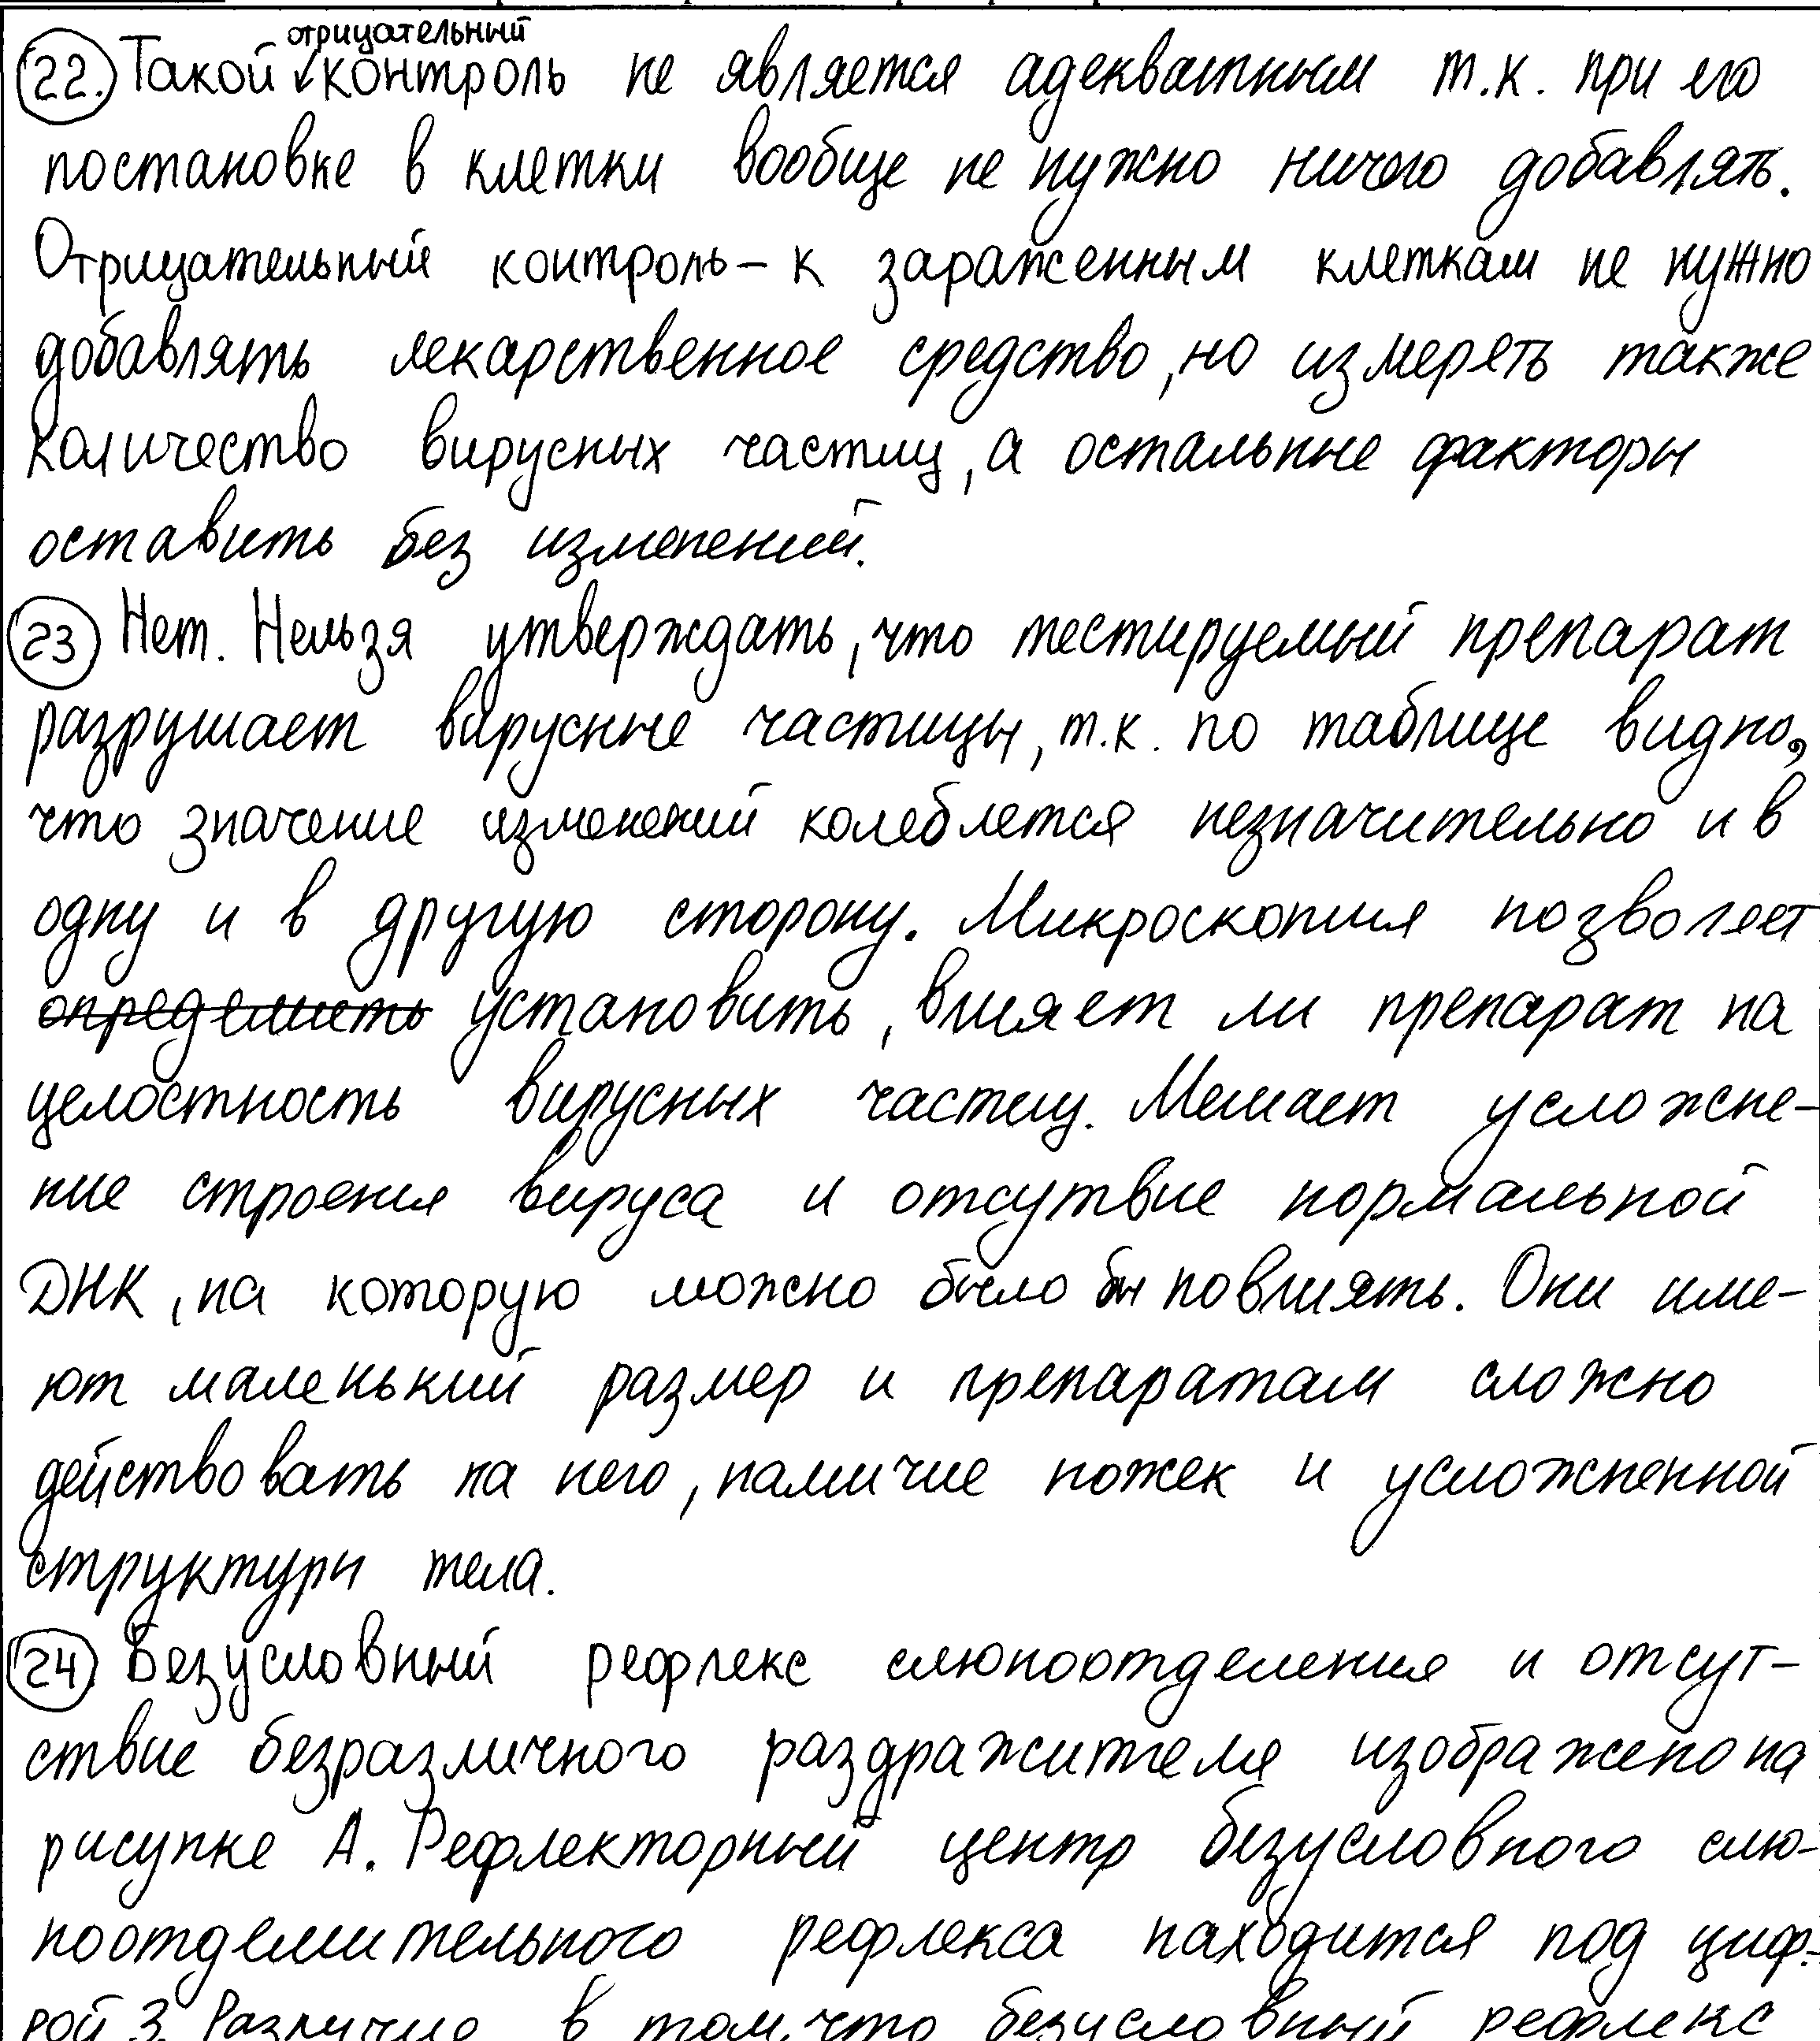 отрицательный
22. Такой контроль не является адекватным т.к. при его
постановке в клетки вообще не нужно ничего добавлять.
Отрицательный контроль – к зараженным клеткам не нужно
добавлять лекарственное средство, но измереть также
количество вирусных частиц, а остальные факторы
оставить без изменений.
23 Нет. Нельзя утверждать, что тестируемый препарат
разрушает вирусные частицы, т.к. по таблице видно,
что значение изменений колеблется незначительно и в
одну и в другую сторону. Микроскопия позволяет
определить установить, влияет ли препарат на
целостность вирусных частиц. Мешает усложне-
ние строения вируса и отсутвие нормальной
ДНК, на которую можно было бы повлиять. Они име-
ют маленький размер и препаратам сложно
действовать на него, наличие ножек и усложненной
структуры тела.
24. Безусловный рефлекс слюноотделения и отсут-
ствие безразличного раздражителя изображено на
рисунке А. Рефлекторный центр безусловного слю-
ноотделительного рефлекса находится под циф-
рой 3. Различие в том, что безусловный рефлекс